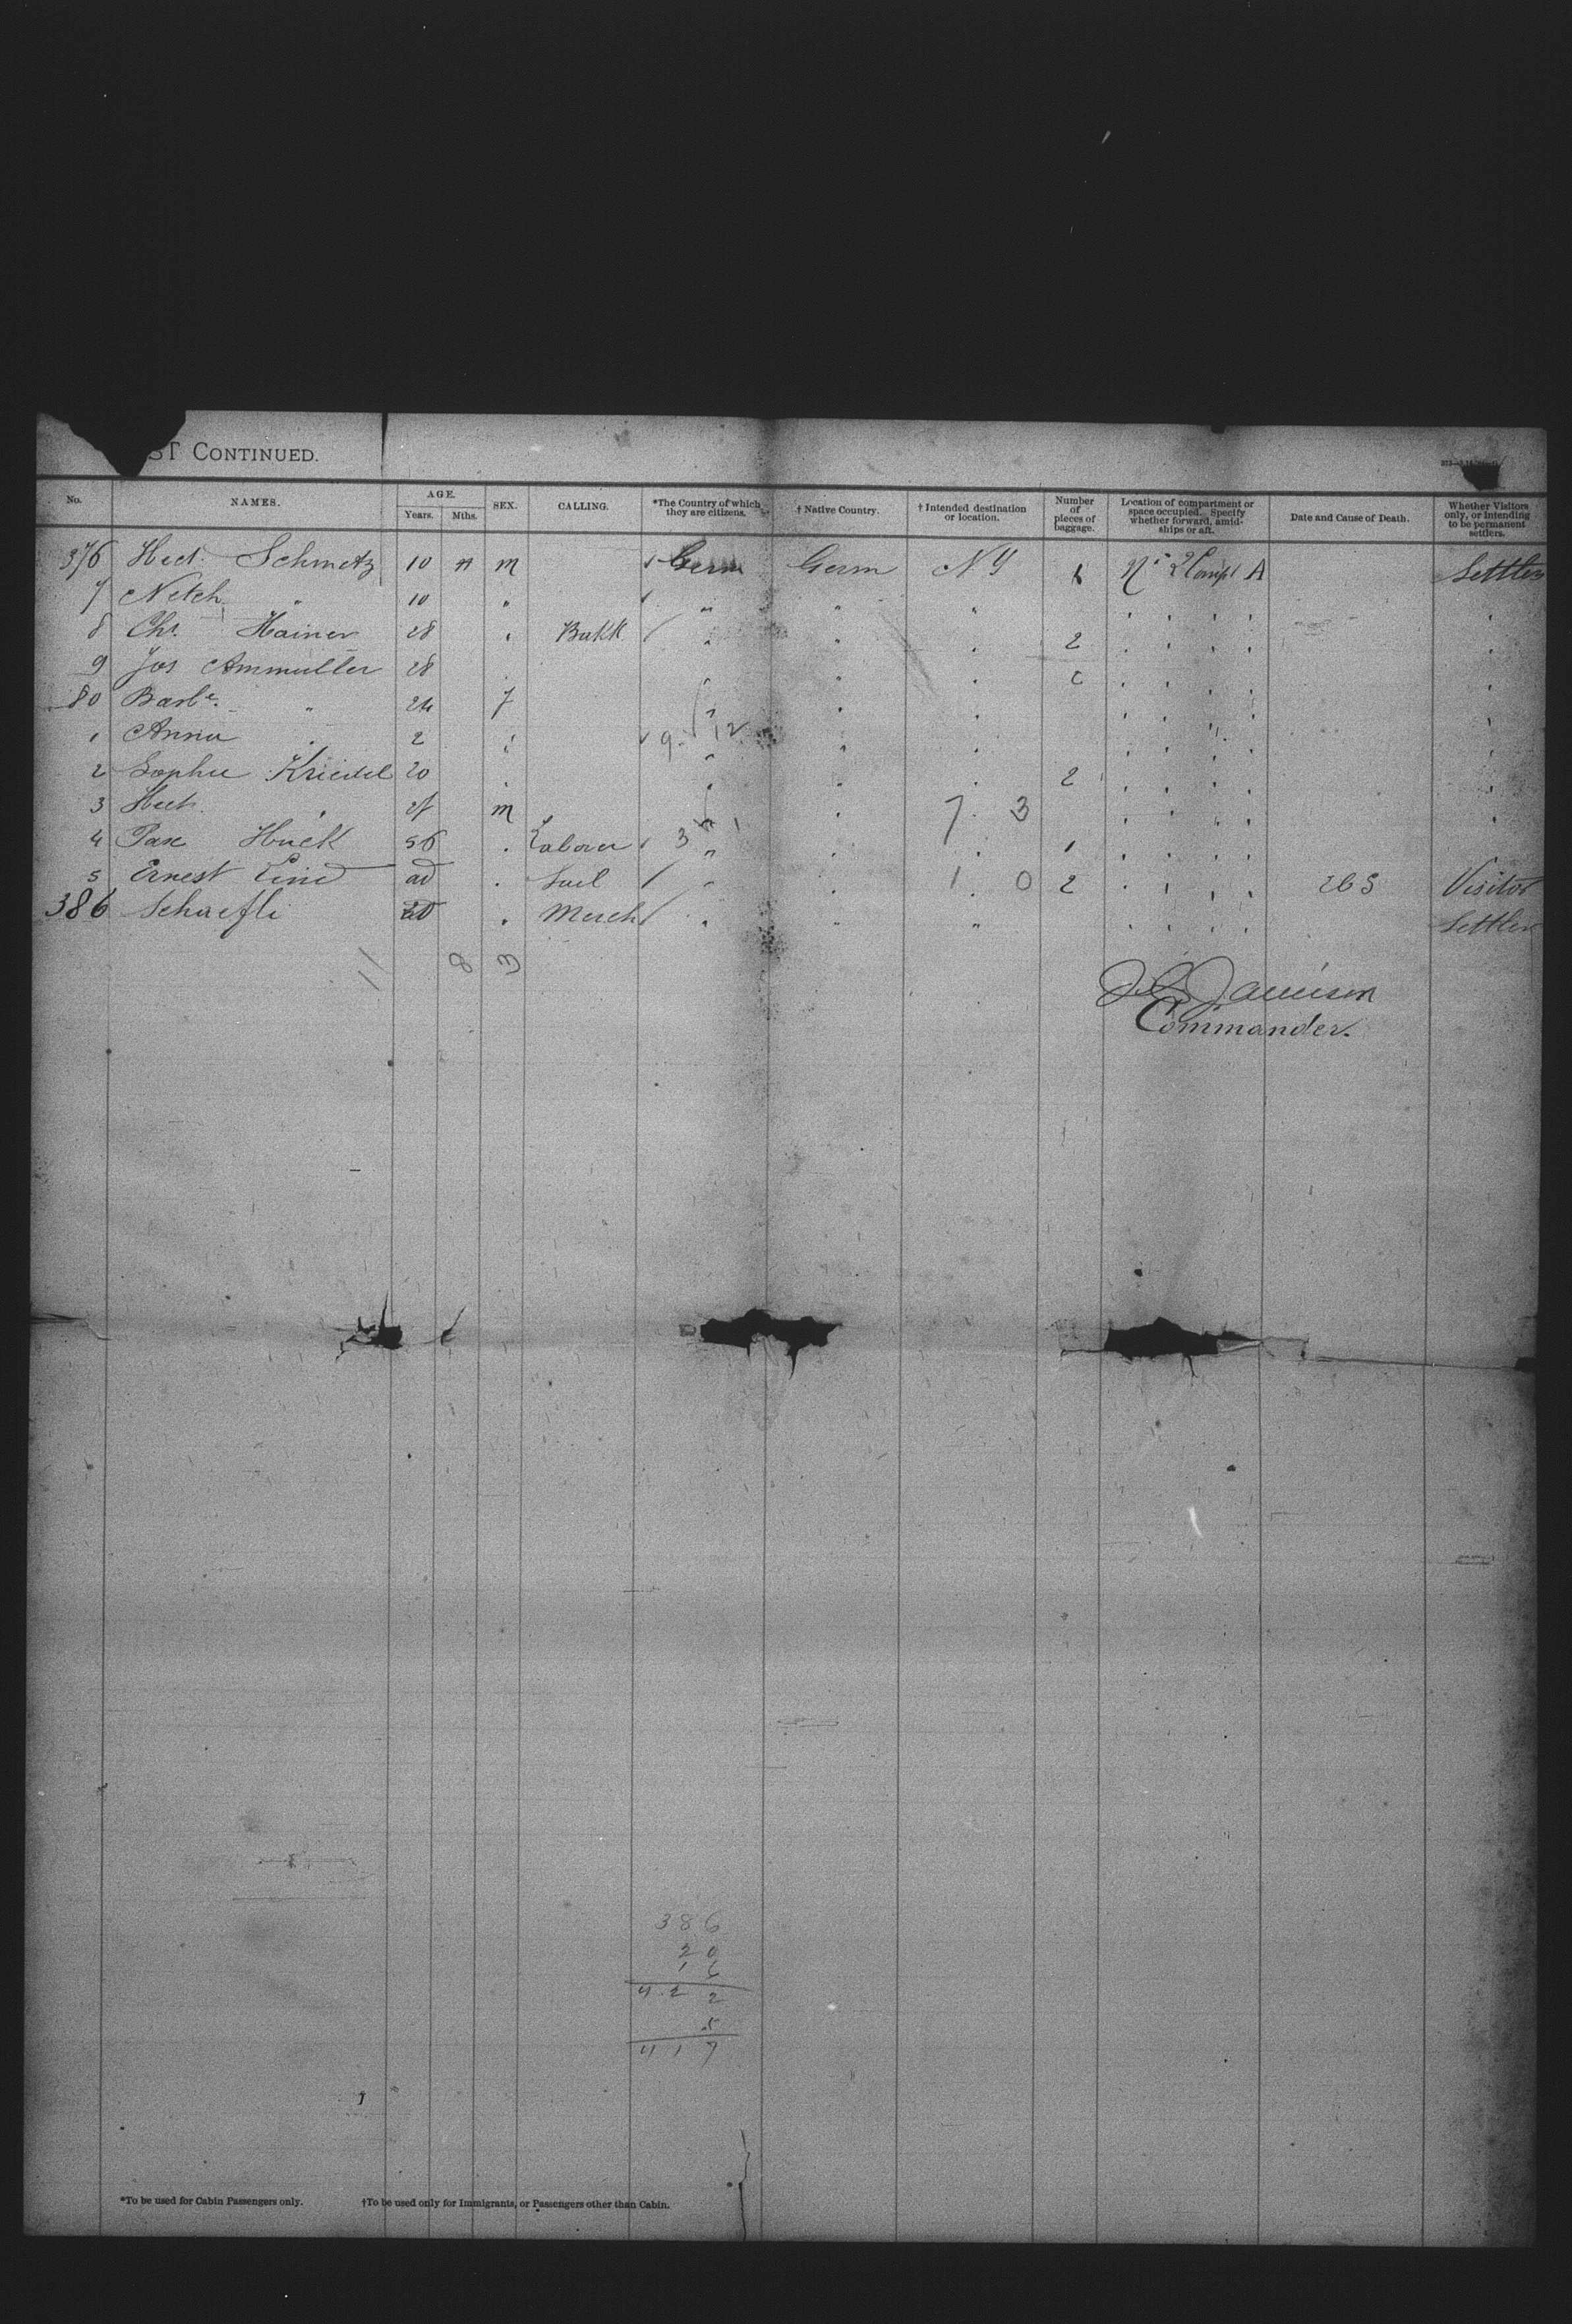 ST CONTINUED.
No. NAMES. AGE. Years. Mths. SEX. CALLING. *The Country of which they are citizens. † Native Country. † Intended destination or location. Number of pieces of baggage. Location of compartment or space occupied. Specify whether forward, amidships or aft. Date and Cause of Death. Whether Visitors only, or intending to be permanent settlers.
376 Schmetz 10 m Germ Germ N.Y Compt A Settler
7 " 10 " " " "
8 Chr. Hainer 28 " " " 2
9 Jos Ammuller 28 " " "
80 Barbe. " 24 f " " "
1 Anna " 2 9 12 " " "
2 Sophie 20 " " " 2
3 " m " " 7 3
4 Huck 56 Laborer 3 " " " 1
5 Ernest Lind ad " " 1 0 2 263 Visitor
386 Schaefli 20 Merch " " " Settler
11 8 3
Jamison
Commander.
386
20
16
422
5
417
*To be used for Cabin Passengers only. †To be used only for Immigrants, or Passengers other than Cabin.